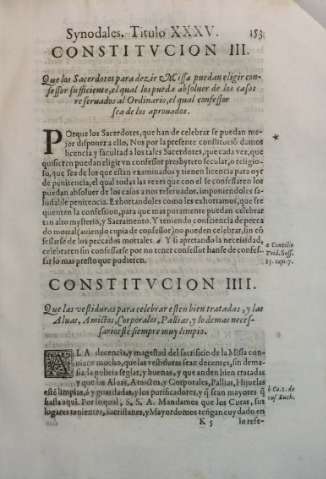 Synodales. Titulo XXXV. 153
CONSTITVCION III.
Que los Sacerdotes para dezir Missa puedan eligir con-
fessor sufficiente, el qual los pueda absoluer de los casos
reseruados al Ordinario, el qual confessor
sea de los aprouados.
POrque los Sacerdotes, que han de celebrar se puedan me-
jor disponer a ello, Nos por la presente constitució damos
licencia y facultad a los tales Sacerdotes, que cada vez, que
quisieren puedan eligir vn confessor presbytero secular, o religio-
so, que sea de los que estan examinados y tienen licencia para oyr
de penitencia, el qual todas las vezes que con el se confessaren los
puedan absoluer de los casos a nos reseruados, imponiendoles sa-
ludable penitencia. Exhortandoles como les exhortamos, que fre
quenten la confession, para que mas puramente puedan celebrar
tan alto mysterio, y Sacramento. Y teniendo consciencia de pecca
do mortal (auiendo copia de confessor) no pueden celebrar, sin cō
fessarse de los peccados mortales. a Y si apretando la necesidad,
celebraren sin confessarse por no tener confessor hanse de confes-
sar lo mas presto que pudieren.
a Concilio
Trid. Sess.
13. cap. 7.
CONSTITVCION IIII.
Que las vestiduras para celebrar esten bien tratadas, y las
Aluas, Amictos, Corporales, Pallias, y lo demas neces-
sario esté siempre muy limpio.
A LA decencia, y magestad del sacrificio de la Missa con-
uiene mucho, que las vestiduras sean decentes, sin dema-
sia, la pobreza seglar, y buenas, y que anden bien tratadas
y que los Aluas, Amictos, y Corporales, Pallias, hijuelas
esté limpias, ó y guardadas, y los purificadores, y q̃ sean mayores q̃
hasta aqui. Por lo qual, S. S. A. Mandamos que los Curas, sus
lugares tenientes, sacristanes, y Mayordomos tengan cuydado en
K 5 lo refe-